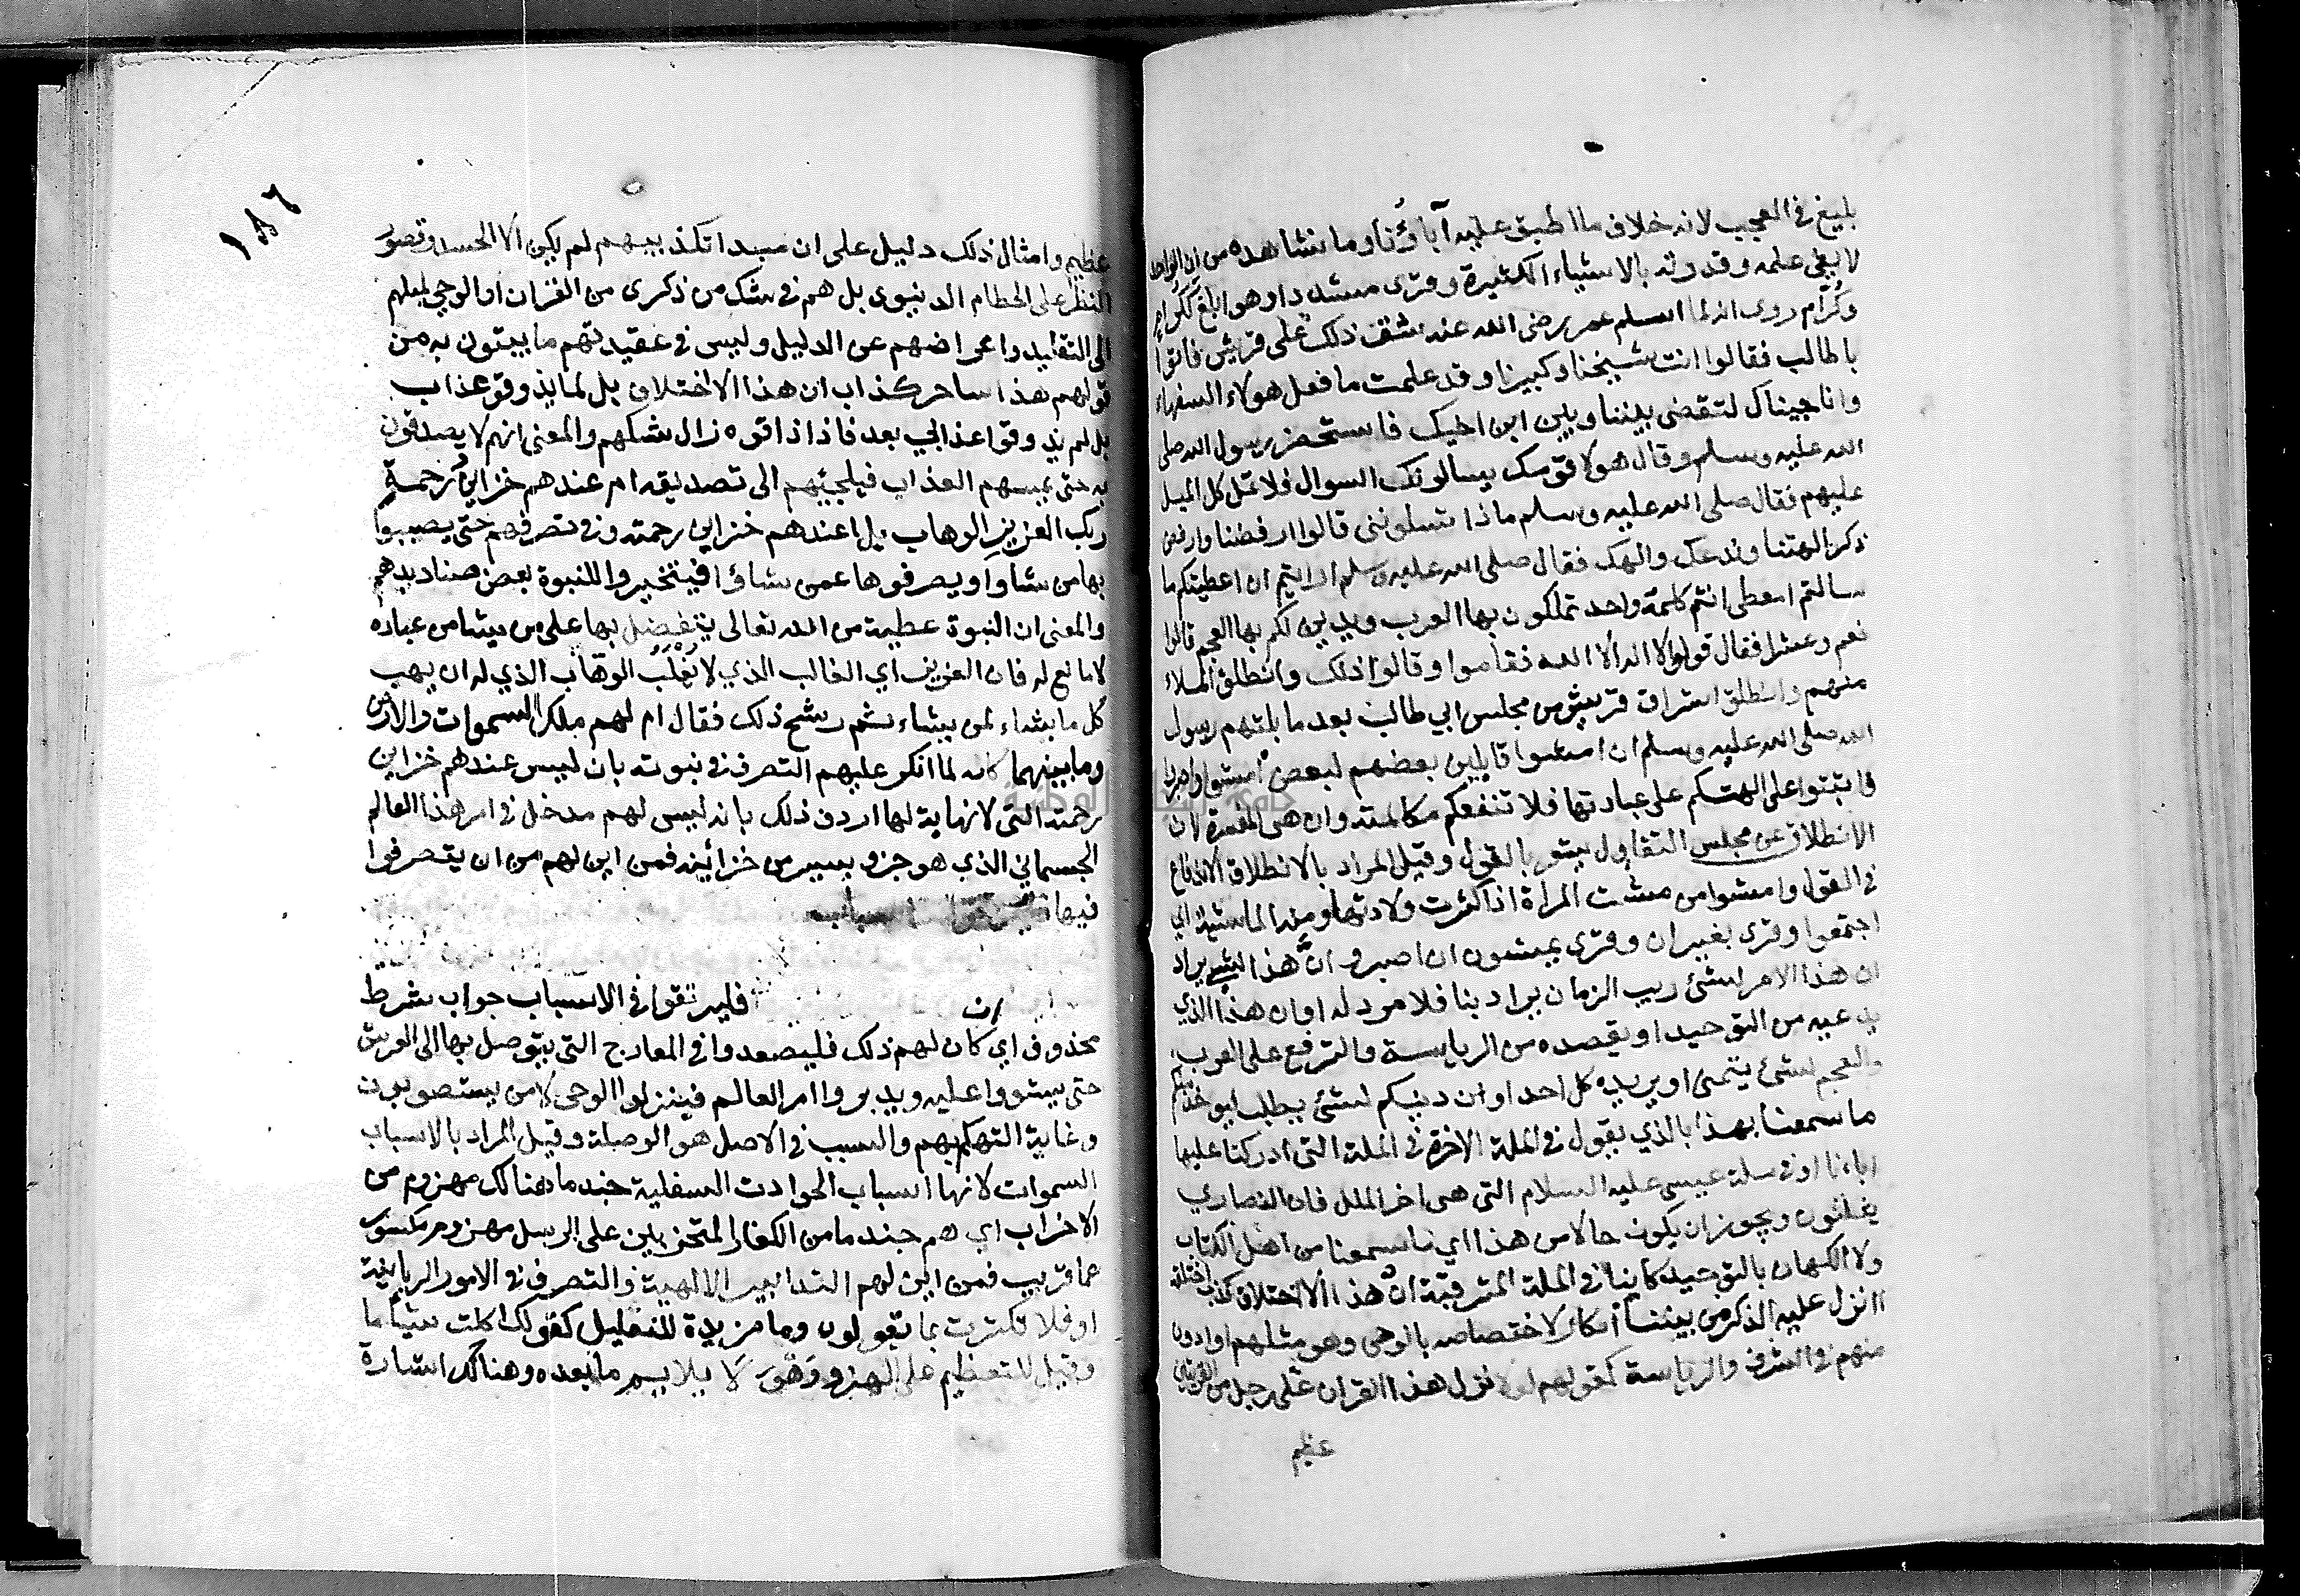 بليغ في العجب لانه خلاف ما اطبق عليه آباؤنا وما نشاهده من ان الواحد
لا يفي علمه وقدرته بالاشياء الكثيرة وقرى مشددا وهو ابلغ ككرام
وكرّام روى انه لما اسلم عمر رضى الله عنه شق ذلك على قريش فاتوا
باطالب فقالوا انت شيخنا وكبيرنا وقد علمت ما فعل هولاء السفهاء
وانا جيناك لتقضى بيننا وبين ابن اخيك فاستحضر رسول الله صلى
الله عليه وسلم وقال هولا قومك يسالونك السوال فلا تمل كل الميل
عليهم فقال صلى الله عليه وسلم ماذا تسلونني قالوا ارفضنا وارفض
ذكر الهتنا وندعك والهك فقال صلى الله عليه وسلم ارايتم ان اعطيتكم ما
سالتم امعطى انتم كلمة واحد تملكون بها العرب ويدين لكم بها العجم قالوا
نعم وعشرا فقال قولوا لا اله الا الله فقاموا وقالوا ذلك وانطلق الملاء
منهم وانطلق اشراف قريش من مجلس ابي طالب بعد ما بكتهم رسول
الله صلى الله عليه وسلم ان امشوا قايلين بعضهم لبعض امشوا واصبروا
واثبتوا على الهتكم على عبادتها فلا تنفعكم مكالمته وان هى المفسرة لان
الانطلاق عن مجلس التقاول يشعر بالقول وقيل المراد بالانطلاق الاندفاع
في القول وامشوا من مشت المراة اذا كثرت ولادتها ومنه الماشية اي
اجتمعوا وقرى بغير ان وقرى يمشون ان اصبروا ان هذا لشيء يراد
ان هذا الامر لشئ من ريب الزمان يراد بنا فلا مرد له او ان هذا الذي
يدعيه من التوحيد او يقصده من الرياسة والترفع على العرب
والعجم لشئ يتمنى او يريده كل احد او ان دينكم لشئ يطلب ليوخذ منكم
ما سمعنا بهذا بالذي يقول في الملة الاخرة في الملة التي ادركنا عليها
اباءنا او في ملة عيسى عليه السلام التى هى اخر الملل فان النصاري
يثلثون ويجوز ان يكون حالا من هذا اي ما سمعنا من اهل الكتاب
ولا الكهان بالتوحيد كاينا في الملة المترقبة ان هذا الا اختلاق كذب اختلقه
اانزل عليه الذكر من بيننا انكار لاختصاصه بالوحى وهو مثلهم او ادون
منهم في الشرف والرياسة كقولهم لولا نزل هذا القران على رجل من القريتين
عظيم
١٨٦
عظيم وامثال ذلك دليل على ان مبدا تكذيبهم لم يكن الا الحسد وقصور
النظر على الحطام الدنيوى بل هم في شك من ذكرى من القران او الوحي لميلهم
الى التقليد واعراضهم عن الدليل وليس في عقيدتهم ما يبتون به من
قولهم هذا ساحر كذاب ان هذا الا اختلاق بل لما يذوقو عذاب
بل لم يذوقوا عذابي بعد فاذا ذاقوه زال شكهم والمعنى انهم لا يصدقون
به حتى يمسهم العذاب فيلجئهم الى تصديقه ام عندهم خزاين رحمة
ربك العزيز الوهاب بل اعندهم خزاين رحمته وفي تصرفهم حتى يصيبوا
بها من شاوا ويصرفوها عمن شاؤا فيتخيروا للنبوة بعض صناديدهم
والمعنى ان النبوة عطية من الله تعالى يتفضل بها على من يشا من عباده
لا مانع له فان العزيز اي الغالب الذي لا يغلب الوهاب الذي له ان يهب
كل ما يشاء لمن يشاء ثم رشح ذلك فقال ام لهم ملك السموات والارض
وما بينهما كانه لما انكر عليهم التصرف في نبوته بان ليس عندهم خزاين
رحمته التى لا نهاية لها اردف ذلك بانه ليس لهم مدخل في امر هذا العالم
الجسماني الذي هو جزو يسير من خزائنه فمن اين لهم من ان يتصرفوا
فيها
ان فليرتقوا في الاسباب جواب شرط
محذوف اي كان لهم ذلك فليصعدوا في المعارج التى يتوصل بها الى العرش
حتى يستووا عليه ويدبروا امر العالم فينزلوا الوحى لا من يستصوبون
وغاية التهكم بهم والسبب في الاصل هو الوصلة وقيل المراد بالاسباب
السموات لانها اسباب الحوادث السفلية جند ما هنالك مهزوم من
الاحزاب اي هم جند ما من الكفار المتحزبين على الرسل مهزوم مكسور
عما قريب فمن اين لهم التدابير الالهية والتصرف في الامور الربانية
او فلا تكترث بما يقولون وما مزيدة للتقليل كقولك اكلت شيأ ما
وقيل للتعظيم على الهزو وهو لا يلايم ما بعده وهنالك اشارة